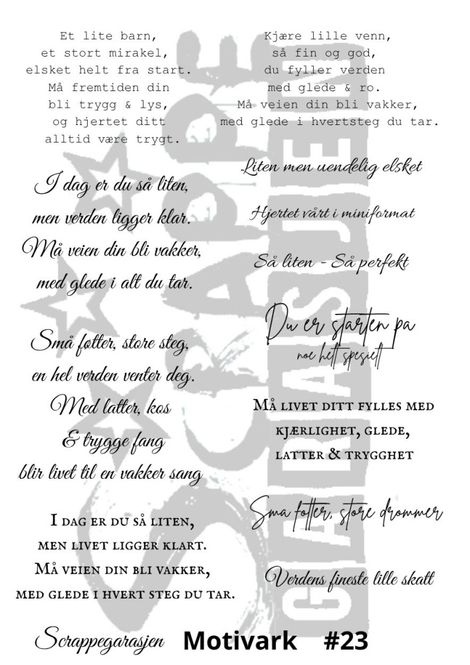 Et lite barn,
et stort mirakel,
elsket helt fra start.
Må fremtiden din
bli trygg & lys,
og hjertet ditt
alltid være trygt.
Kjære lille venn,
så fin og god,
du fyller verden
med glede & ro.
Må veien din bli vakker,
med glede i hvertsteg du tar.
Liten men uendelig elsket
Hjertet vårt i miniformat
Så liten - Så perfekt
Du er starten på
noe helt spesielt
Må livet ditt fylles med
kjærlighet, glede,
latter & trygghet
Små føtter, store drømmer
Verdens fineste lille skatt
I dag er du så liten,
men verden ligger klar.
Må veien din bli vakker,
med glede i alt du tar.
Små føtter, store steg,
en hel verden venter deg.
Med latter, kos
& trygge fang
blir livet til en vakker sang
I dag er du så liten,
men livet ligger klart.
Må veien din bli vakker,
med glede i hvert steg du tar.
SCRAPPE
GARASJEN
Scrappegarasjen Motivark #23